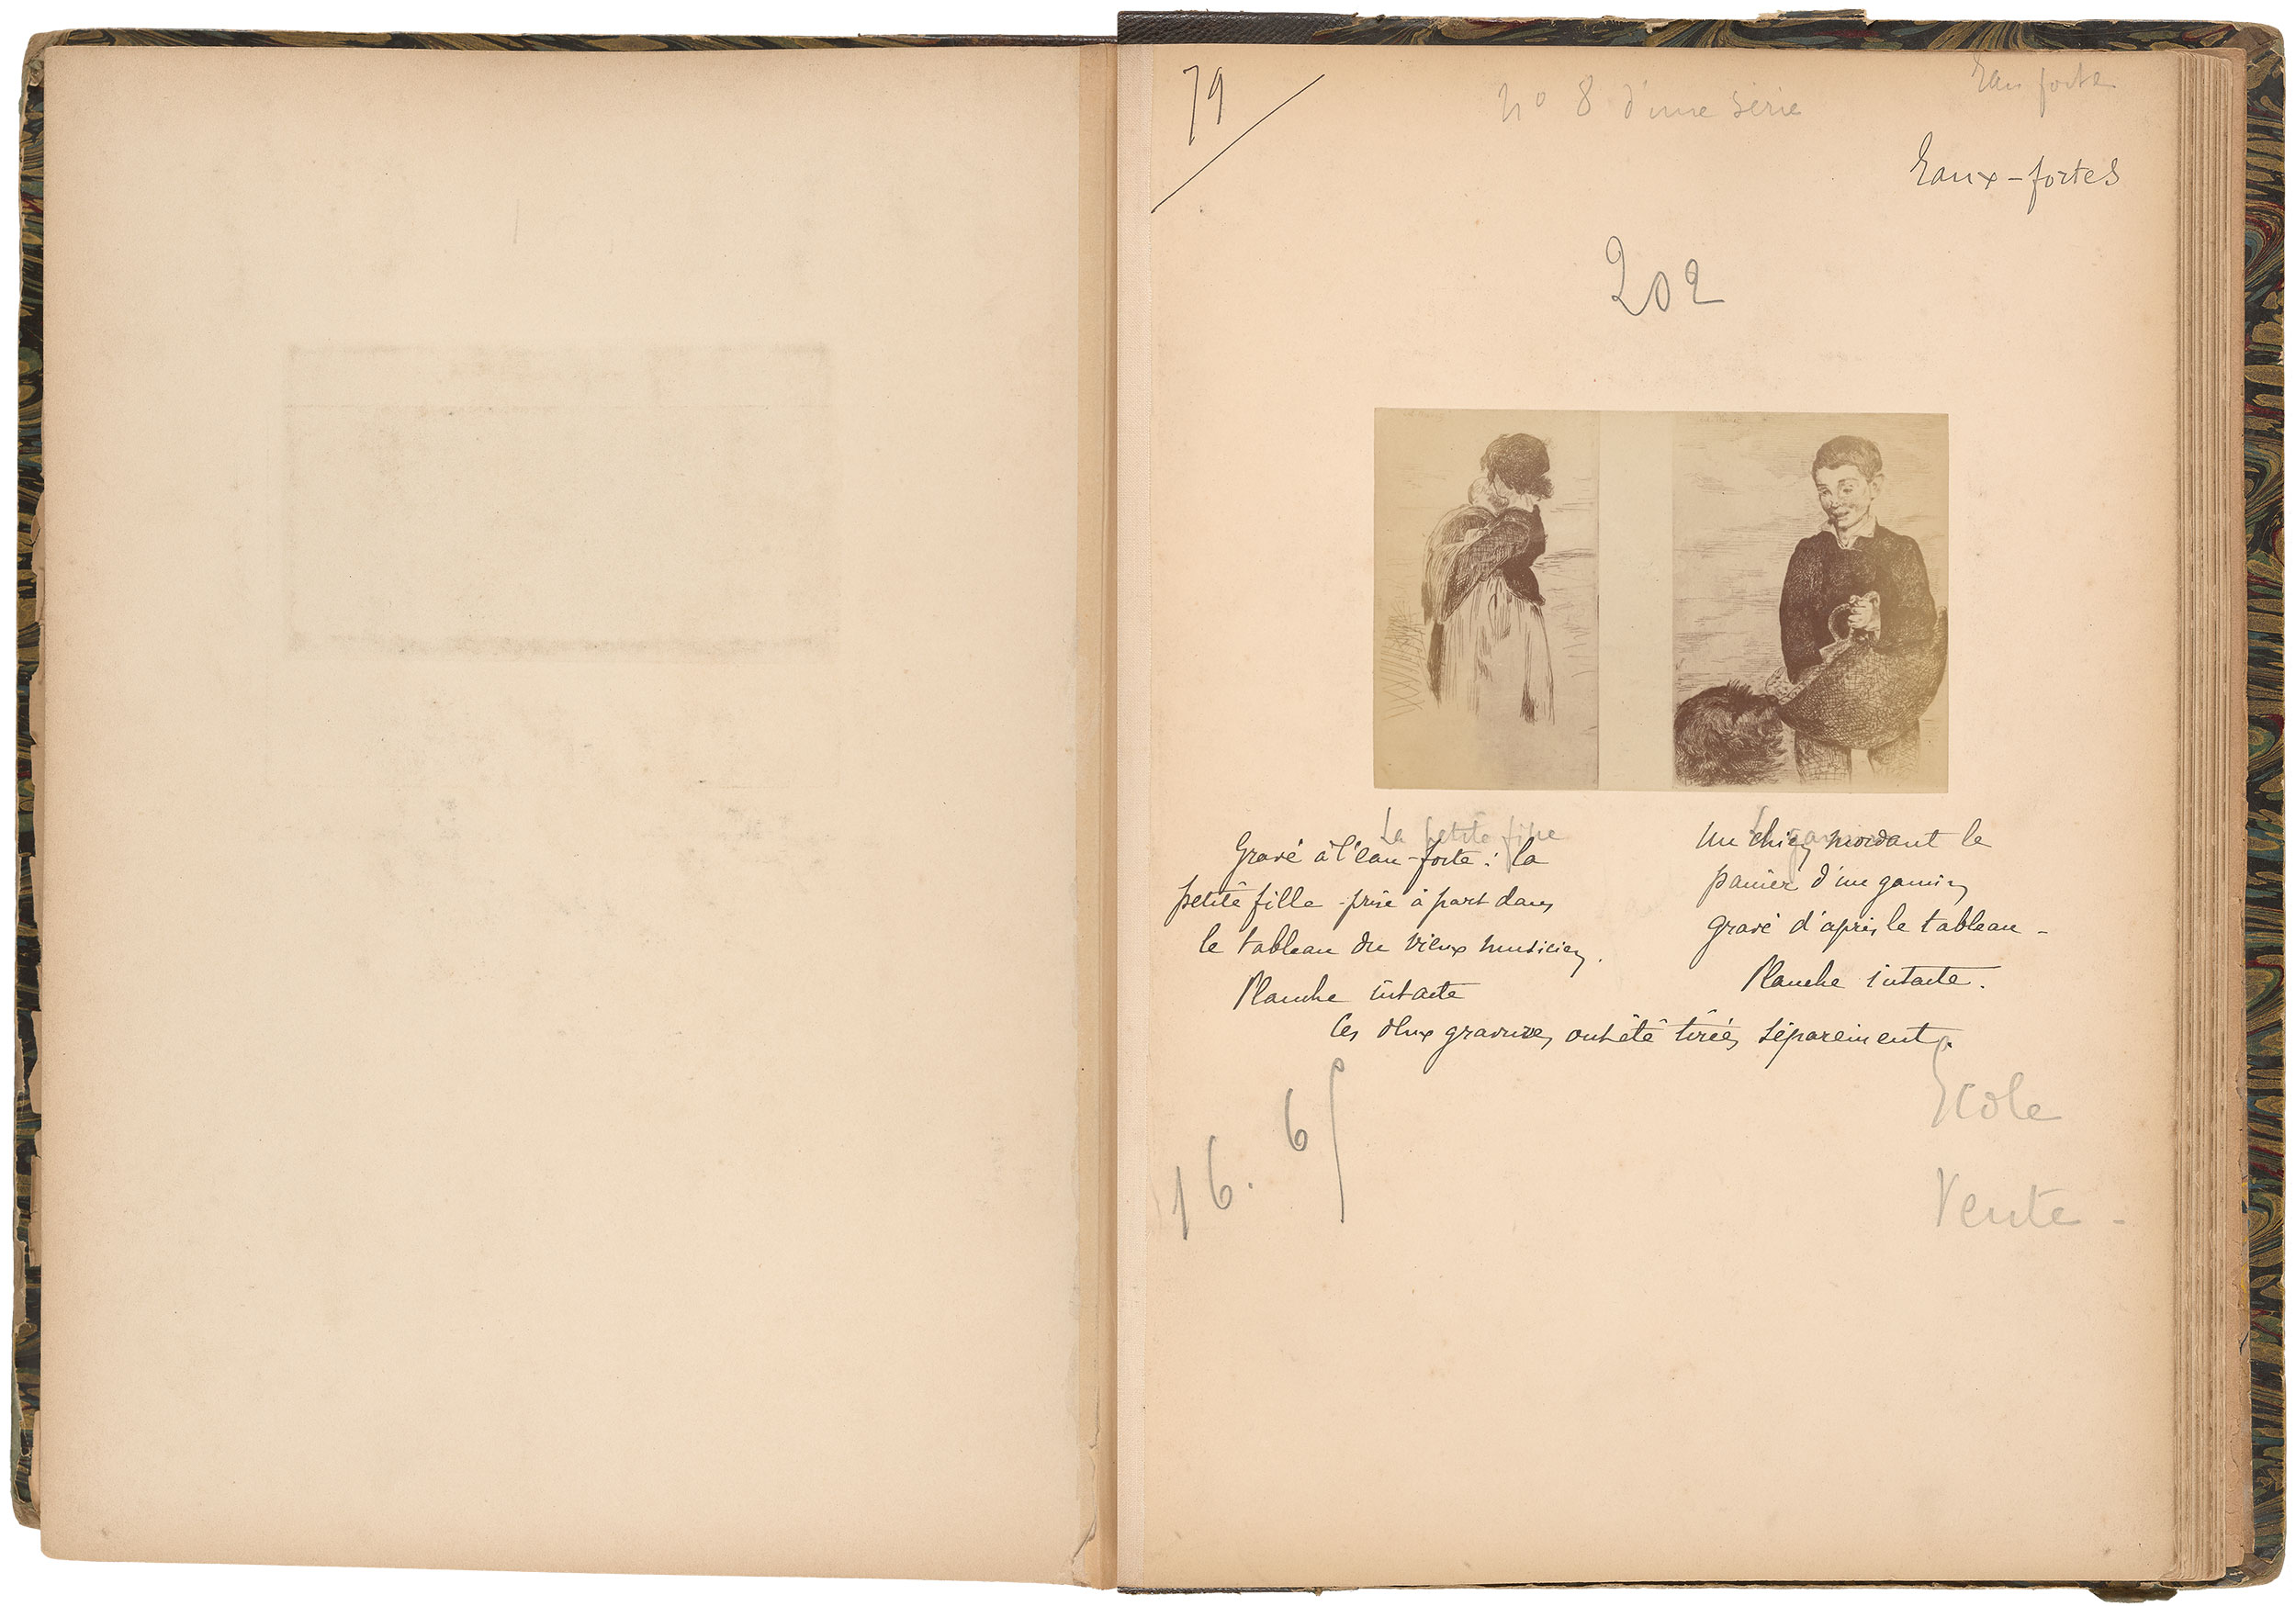 79
nº 8 d'une série
Eau forte
Eaux-fortes
202
La petite fille
Gravé à l'eau-forte : la
petite fille prise à part dans
le tableau du vieux musicien.
Planche intacte
Le gamin
Un chien mordant le
panier d'un gamin
gravé d'après le tableau -
Planche intacte.
Ces deux gravures ont été tirées séparement.
16. 6
Ecole
Vente -